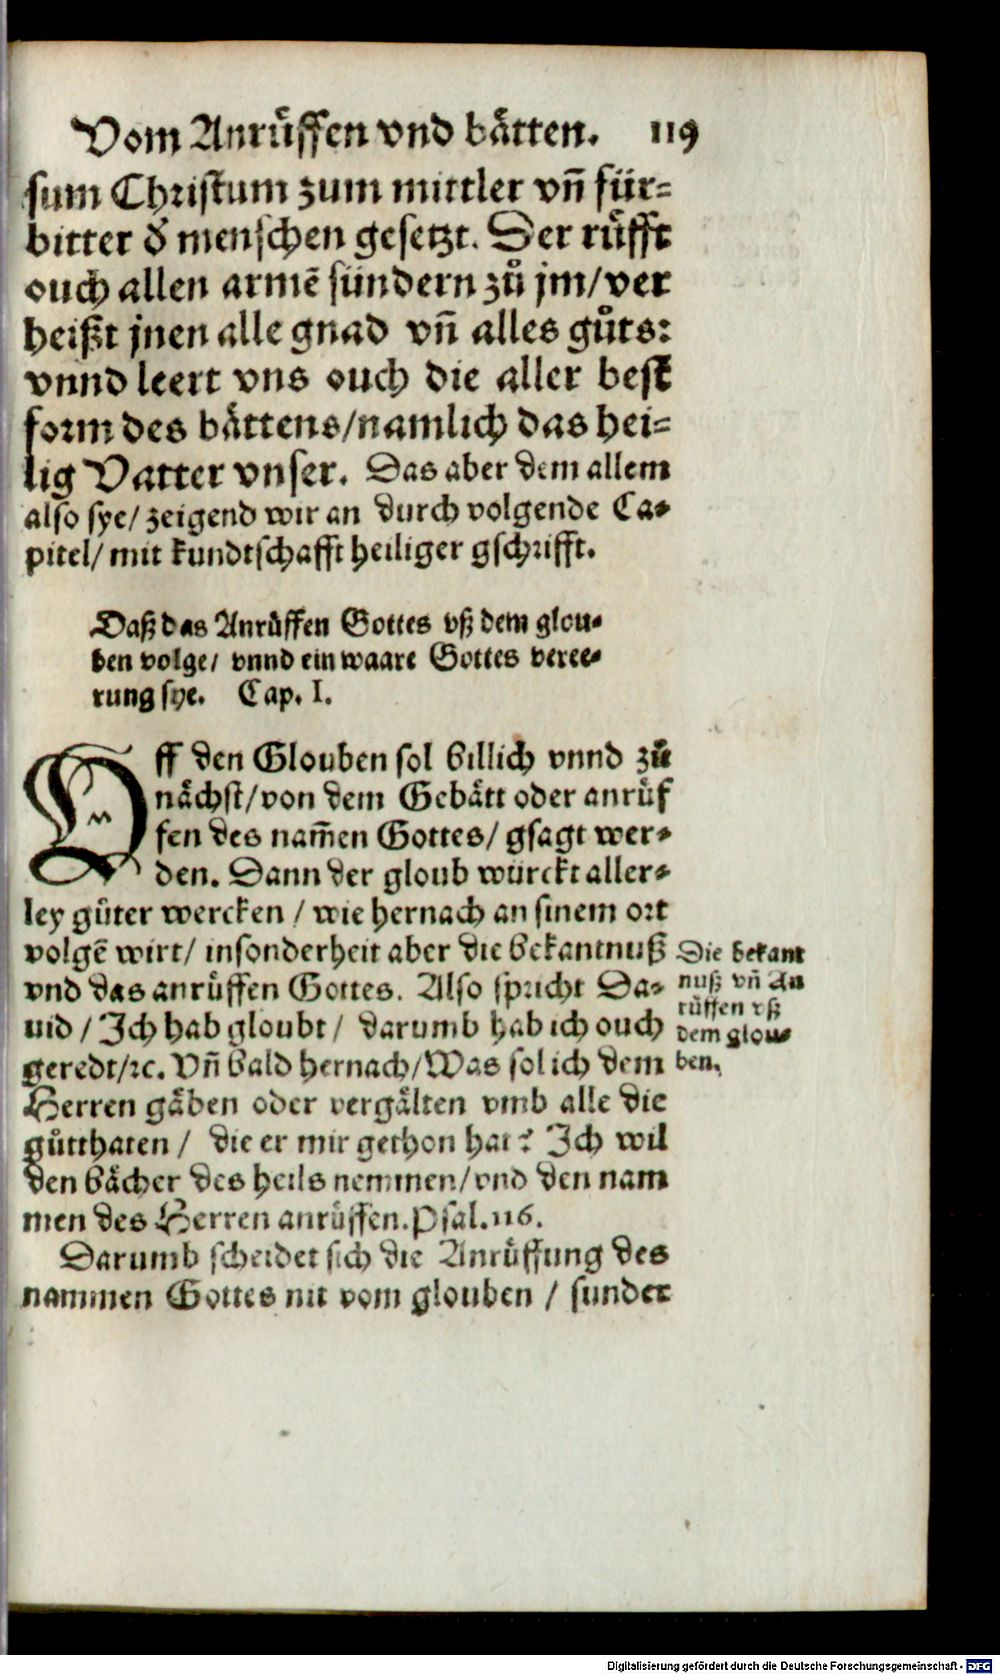 Vom Anrüffen vnd bätten. 119
sum Christum zum mittler vn̄ für=
bitter d̕ menschen gesetzt. Der rüfft
ouch allen armē sündern zů jm/ver
heißt jnen alle gnad vn̄ alles gůts:
vnnd leert vns ouch die aller best
form des bättens/namlich das hei=
lig Vatter vnser. Das aber dem allem
also sye/ zeigend wir an durch volgende Ca=
pitel/ mit kundtschafft heiliger gschrifft.
Daß das Anrüffen Gottes vß dem glou=
ben volge/ vnnd ein waare Gottes veree=
rung sye. Cap. I.
Vff den Glouben sol billich vnnd zů
nächst/von dem Gebätt oder anrüf
fen des nam̄en Gottes/ gsagt wer=
den. Dann der gloub würckt aller=
ley gůter wercken / wie hernach an sinem ort
volgē wirt/ insonderheit aber die bekantnuß
vnd das anrüffen Gottes. Also spricht Da=
uid / Ich hab gloubt / darumb hab ich ouch
geredt/ꝛc. Vn̄ bald hernach/Was sol ich dem
Herren gäben oder vergälten vmb alle die
gůtthaten / die er mir gethon hat? Ich wil
den bächer des heils nemmen/vnd den nam
men des Herren anrüffen.Psal.116.
Darumb scheidet sich die Anrüffung des
nammen Gottes nit vom glouben / sunder
Die bekant
nuß vn̄ An
rüffen vß
dem glou=
ben.
Digitalisierung gefördert durch die Deutsche Forschungsgemeinschaft - DFG